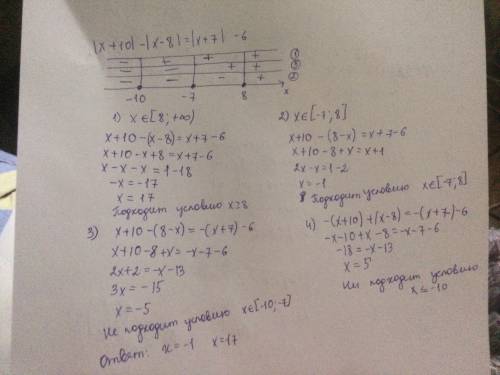 |x+10|-|x-8|=|x+7| -6
- + + + ①
- - + + ③
- - - + ②
-10 -7 8 x
1) x∈[8;+∞)
x+10-(x-8)=x+7-6
x+10-x+8=x+7-6
x-x-x=1-18
-x=-17
x=17
Подходит условию x≥8
2) x∈[-7;8]
x+10-(8-x)=x+7-6
x+10-8+x=x+1
2x-x=1-2
x=-1
Подходит условию x∈[-7;8]
3) x+10-(8-x)=-(x+7)-6
x+10-8+x=-x-7-6
2x+2=-x-13
3x=-15
x=-5
Не подходит условию x∈[-10;-7]
4) -(x+10)+(x-8)=-(x+7)-6
-x-10+x-8=-x-7-6
-18=-x-13
x=5
Не подходит условию
x≤-10
Ответ: x=-1 x=17